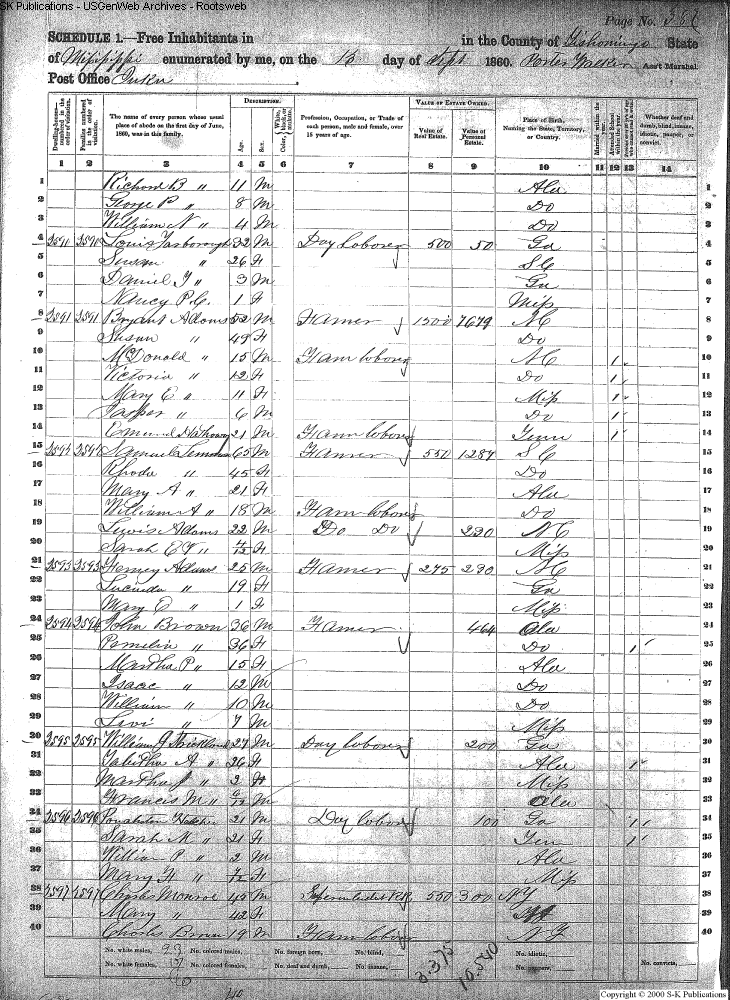 SK Publications - USGenWeb Archives - Rootsweb
Page No.
SCHEDULE 1.—Free Inhabitants in in the County of Tishomingo State
of Mississippi enumerated by me, on the 13 day of Sept 1860. Porter Walker Ass't Marshal.
Post Office Iuka
Dwelling-houses—numbered in the order of visitation.
Families numbered in the order of visitation.
The name of every person whose usual place of abode on the first day of June, 1860, was in this family.
DESCRIPTION.
Age.
Sex.
White, black, or mulatto.
Color,
Profession, Occupation, or Trade of each person, male and female, over 15 years of age.
VALUE OF ESTATE OWNED.
Value of Real Estate.
Value of Personal Estate.
Place of Birth, Naming the State, Territory, or Country.
Married within the year.
Attended School within the year.
Whether deaf and dumb, blind, insane, idiotic, pauper, or convict.
1 2 3 4 5 6 7 8 9 10 11 12 13 14
1 Richard B " 11 M Ala 1
2 George P " 8 M Do 2
3 William N " 4 M Do 3
4 2590 Louis Yarborough 32 M Day laborer 500 50 Ga 4
5 Susan " 26 F S C 5
6 Daniel Y " 3 M Ga 6
7 Nancy P. C. 1 F Miss 7
8 2591 2591 Bryant Adams 52 M Farmer 1500 7679 N C 8
9 Susan " 49 F Do 9
10 McDonald " 15 M Farm laborer N C 1 10
11 Victoria " 12 F Do 1 11
12 Mary E " 11 F Miss 1 12
13 Jasper " 6 M Do 1 13
14 Hathaway 21 M Farm laborer Tenn 1 14
15 2592 2592 Samuel 65 M Farmer 550 1287 S C 15
16 Rhoda " 45 F Do 16
17 Mary A " 21 F Ala 17
18 William A " 18 M Farm laborer Do 18
19 Lewis Adams 22 M Do Do 230 N C 19
20 Sarah E F " F Miss 20
21 2593 2593 Harvey Adams 25 M Farmer 275 230 N C 21
22 Lucinda " 19 F Ga 22
23 Mary E " 1 F Miss 23
24 2594 2594 John Brown 36 M Farmer 464 Ala 24
25 Pamelia " 36 F Do 1 25
26 Martha P " 15 F Ala 26
27 Isaac " 12 M Do 27
28 William " 10 M Do 28
29 Levi " 7 M Miss 29
30 2595 2595 William J Strickland 27 M Day laborer 200 Ga 30
31 Talitha A " 26 F Ala 1 31
32 Martha J " 2 F Miss 32
33 Francis M " M Ala 33
34 2596 2596 21 M Day laborer 100 Ga 1 34
35 Sarah M " 21 F Ten 1 35
36 William P " 2 M Ala 36
37 Mary F " F Miss 37
38 2597 2597 Charles Monroe 45 M 550 300 N Y 38
39 Mary " 42 F 39
40 Charles Brown 19 M Farm laborer N Y 40
No. white males, 23 No. colored males, No. foreign born, No. blind, 3.375 10.540 No. idiotic, No. convicts,
No. white females, 17 No. colored females, No. deaf and dumb, No. insane, No. paupers,
40
Copyright © 2000 S-K Publications